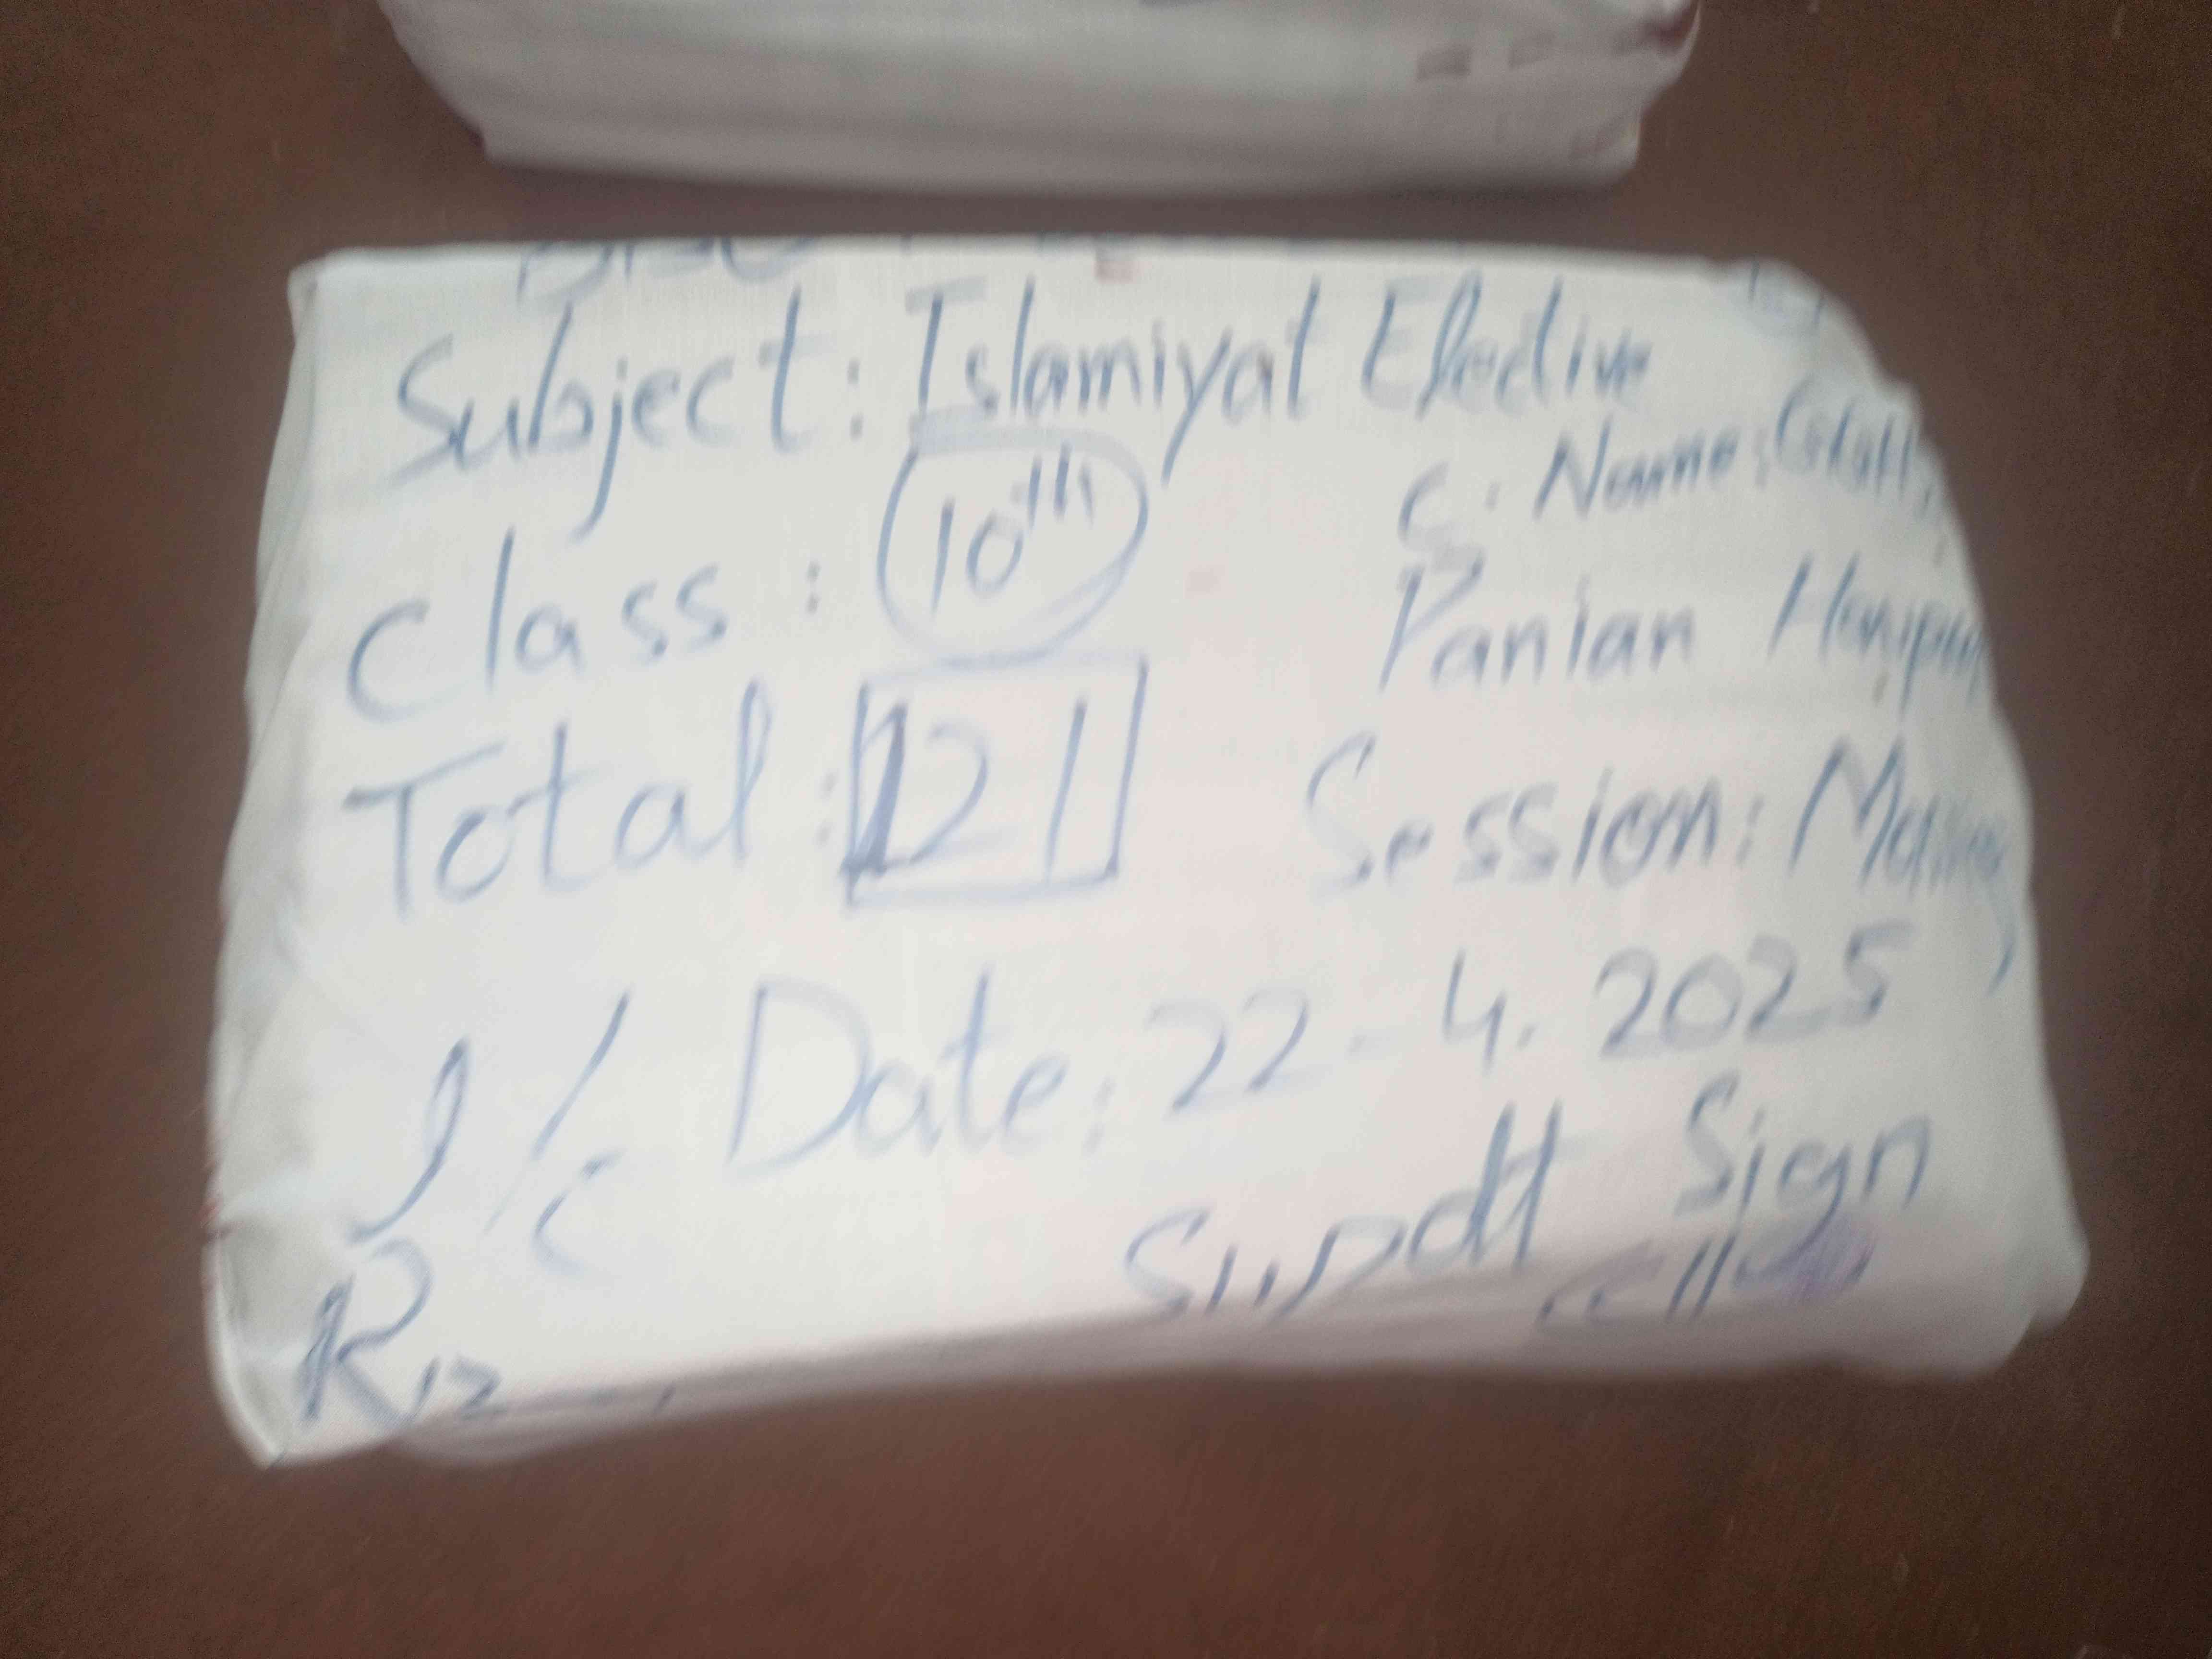 Subject: Islamiyat Elective
Class: 10th
C. Name:
Panian Haripur
Total: 121
Session: Morning
Date: 22-4.2025
I/C
Supdt Sign